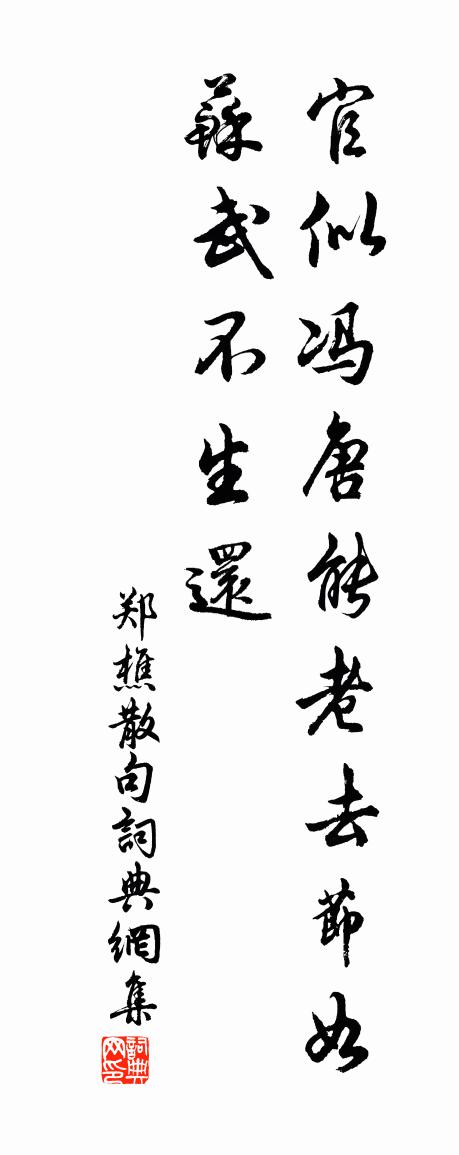 官似冯唐能老去節如
蘇武不生還
郑樵散句詞典網集
詞典网印